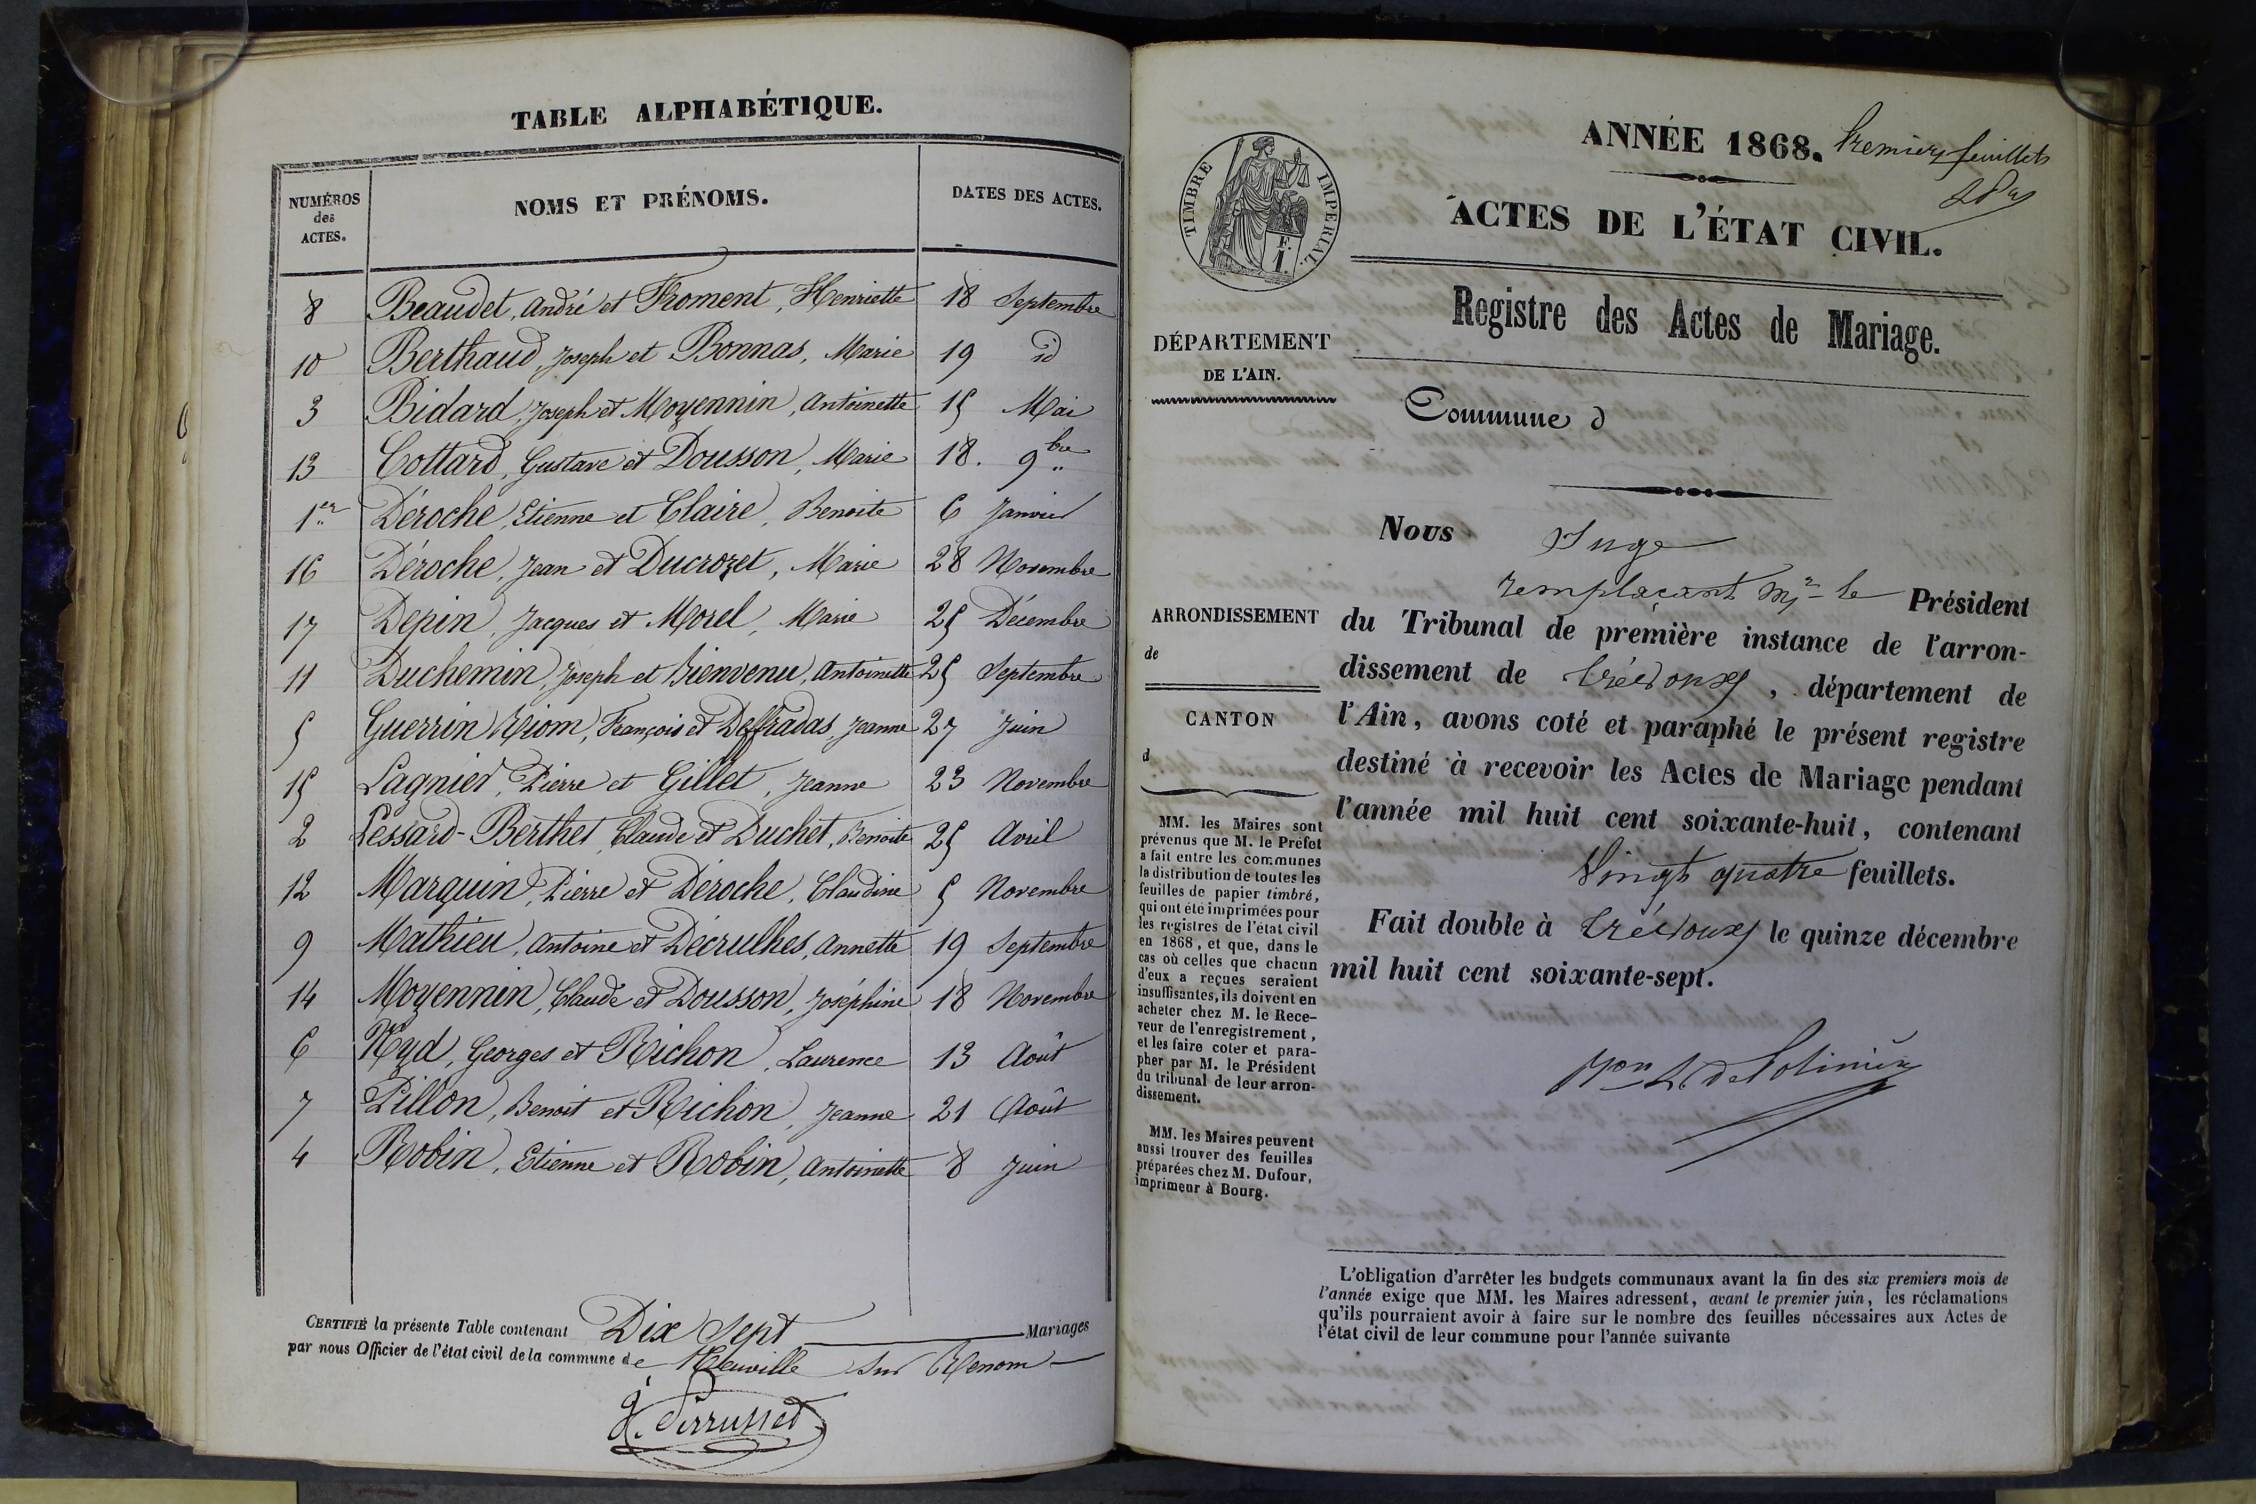 TABLE ALPHABÉTIQUE.
NUMÉROS des ACTES. NOMS ET PRÉNOMS. DATES DES ACTES.
8 Beaudet, André et Froment, Henriette 18 Septembre
10 Berthaud, Joseph et Bonnas, Marie 19 id
3 Bidard, Joseph et Moyennin, Antoinette 15 Mai
13 Cottard, Gustave et Dousson, Marie 18. 9bre
1er Déroche, Etienne et Claire, Benoite 6 Janvier
16 Déroche, Jean et Ducrozet, Marie 28 Novembre
17 Depin, Jacques et Morel, Marie 25 Décembre
11 Duchemin, Joseph et Bienvenu, Antoinette 25 Septembre
5 Guerrin Riom, François et Deffradas, Jeanne 27 Juin
15 Lagnier, Pierre et Gillet, Jeanne 23 Novembre
2 Lessard-Berthet, Claude et Duchet, Benoite 25 Avril
12 Marguin, Pierre et Déroche, Claudine 5 Novembre
9 Mathieu, Antoine et Décrulhes, Annette 19 Septembre
14 Moyennin, Claude et Dousson, Joséphine 18 Novembre
6 Nyd, Georges et Richon, Laurence 13 Août
7 Pillon, Benoit et Richon, Jeanne 21 Août
4 Robin, Etienne et Robin, Antoinette 8 Juin
CERTIFIÉ la présente Table contenant Dix Sept Mariages
par nous Officier de l'état civil de la commune de Neuville sur Renom
Perrusset
ANNÉE 1868. Premiers feuillets
TIMBRE IMPERIAL.
E.
I.
ACTES DE L'ÉTAT CIVIL.
Registre des Actes de Mariage.
DÉPARTEMENT
DE L'AIN.
Commune d
ARRONDISSEMENT
de
CANTON
d
MM. les Maires sont
prévenus que M. le Préfet
a fait entre les communes
la distribution de toutes les
feuilles de papier timbré,
qui ont été imprimées pour
les registres de l'état civil
en 1868, et que, dans le
cas où celles que chacun
d'eux a reçues seraient
insuffisantes, ils doivent en
acheter chez M. le Rece-
veur de l'enregistrement,
et les faire coter et para-
pher par M. le Président
du tribunal de leur arron-
dissement.
MM. les Maires peuvent
aussi trouver des feuilles
préparées chez M. Dufour,
imprimeur à Bourg.
Nous Juge
remplaçant Mr le Président
du Tribunal de première instance de l'arron-
dissement de Trévoux, département de
l'Ain, avons coté et paraphé le présent registre
destiné à recevoir les Actes de Mariage pendant
l'année mil huit cent soixante-huit, contenant
Vingt quatre feuillets.
Fait double à Trévoux le quinze décembre
mil huit cent soixante-sept.
L'obligation d'arrêter les budgets communaux avant la fin des six premiers mois de
l'année exige que MM. les Maires adressent, avant le premier juin, les réclamations
qu'ils pourraient avoir à faire sur le nombre des feuilles nécessaires aux Actes de
l'état civil de leur commune pour l'année suivante